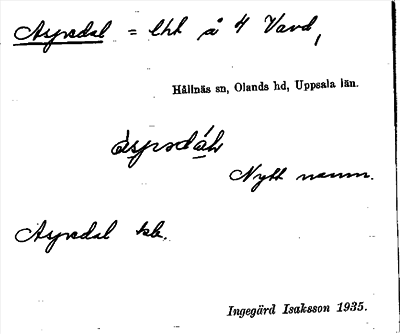 Aspsdal = lht å 4 Vavd,
Hållnäs sn, Olands hd, Uppsala län.
àspsdáɫ
Nytt namn.
Aspsdal kk.
Ingegärd Isaksson 1935.